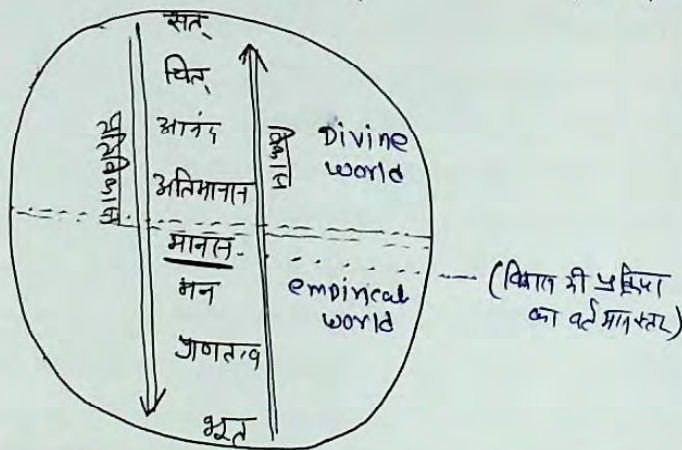 सत्
चित्
आनंद
अतिमानस
मानस
मन
प्राणतत्व
भूत
प्रतिविकास
विकास
Divine
world
empirical
world
(विकास की प्रक्रिया
का वर्तमान स्तर)